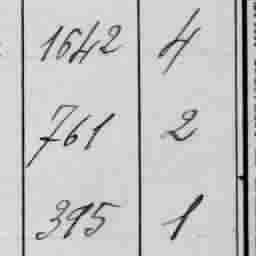 1642 4
761 2
395 1